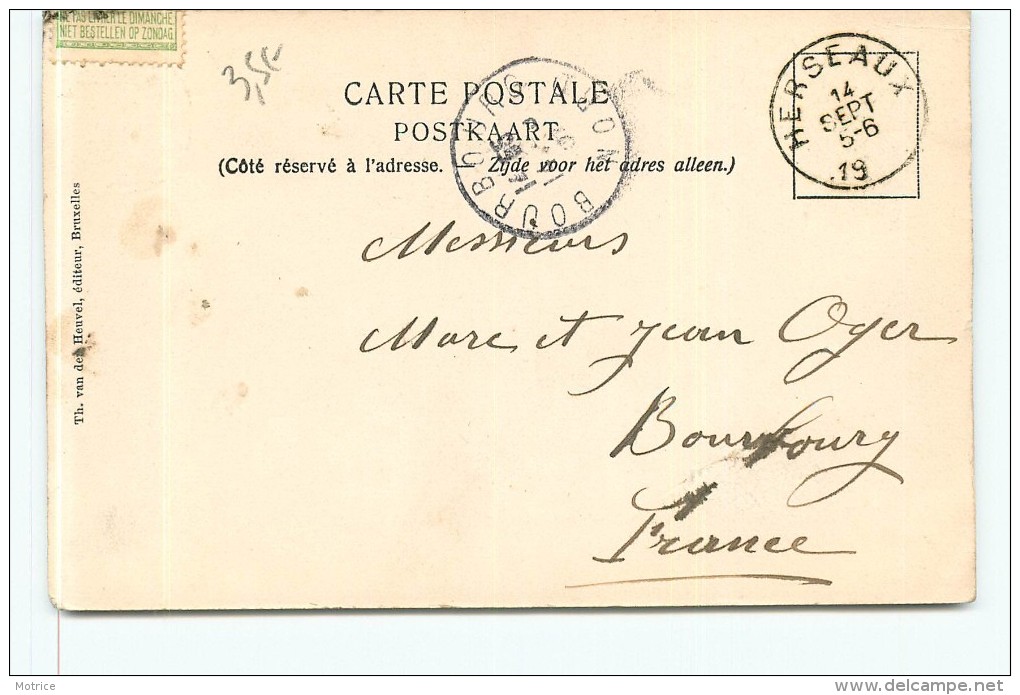 NE PAS LIVRER LE DIMANCHE
NIET BESTELLEN OP ZONDAG
3,50
CARTE POSTALE
POSTKAART
(Côté réservé à l'adresse. — Zijde voor het adres alleen.)
HERSEAUX
14
SEPT
5-6
19
BOURBOURG
Th. van den Heuvel, éditeur, Bruxelles
Messieurs
Marc et Jean Oger
Bourbourg
France
Motrice
delcampe.net